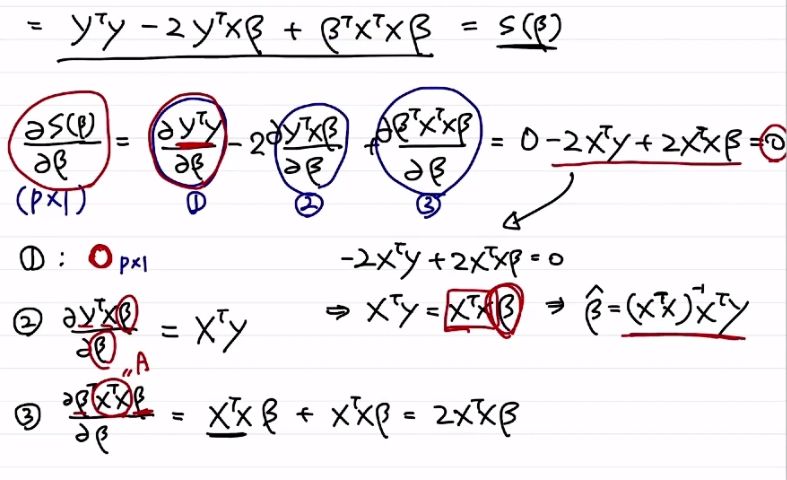 = yᵀy - 2yᵀxβ + βᵀxᵀxβ = S(β)
∂S(β)/∂β = ∂yᵀy/∂β - 2 ∂yᵀxβ/∂β + ∂βᵀxᵀxβ/∂β = 0 - 2xᵀy + 2xᵀxβ = 0
(p×1) ① ② ③
① : 0 p×1
-2xᵀy + 2xᵀxβ = 0
② ∂yᵀxβ/∂β = xᵀy
⇒ xᵀy = xᵀxβ ⇒ β̂ = (xᵀx)⁻¹xᵀy
"A
③ ∂βᵀxᵀxβ/∂β = xᵀxβ + xᵀxβ = 2xᵀxβ